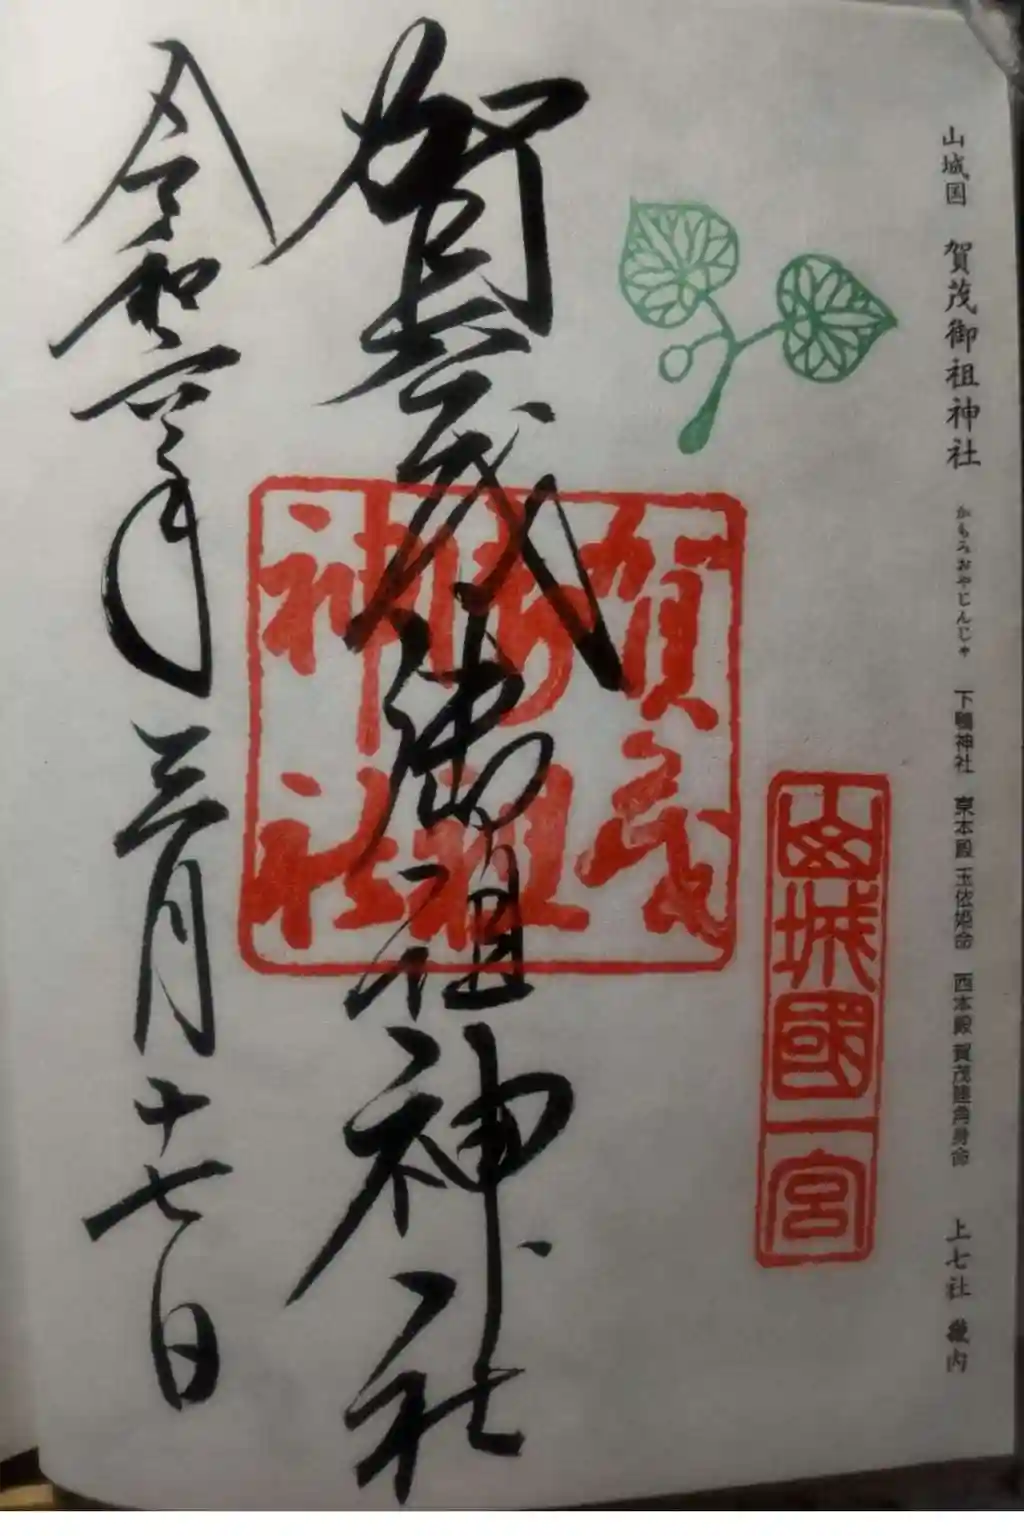 山城国 賀茂御祖神社 かもみおやじんじゃ 下鴨神社 東本殿 玉依姫命 西本殿 賀茂建角身命 上七社 畿内
山城國一宮
賀茂御祖神社
賀茂御祖神社
令和六年三月十七日